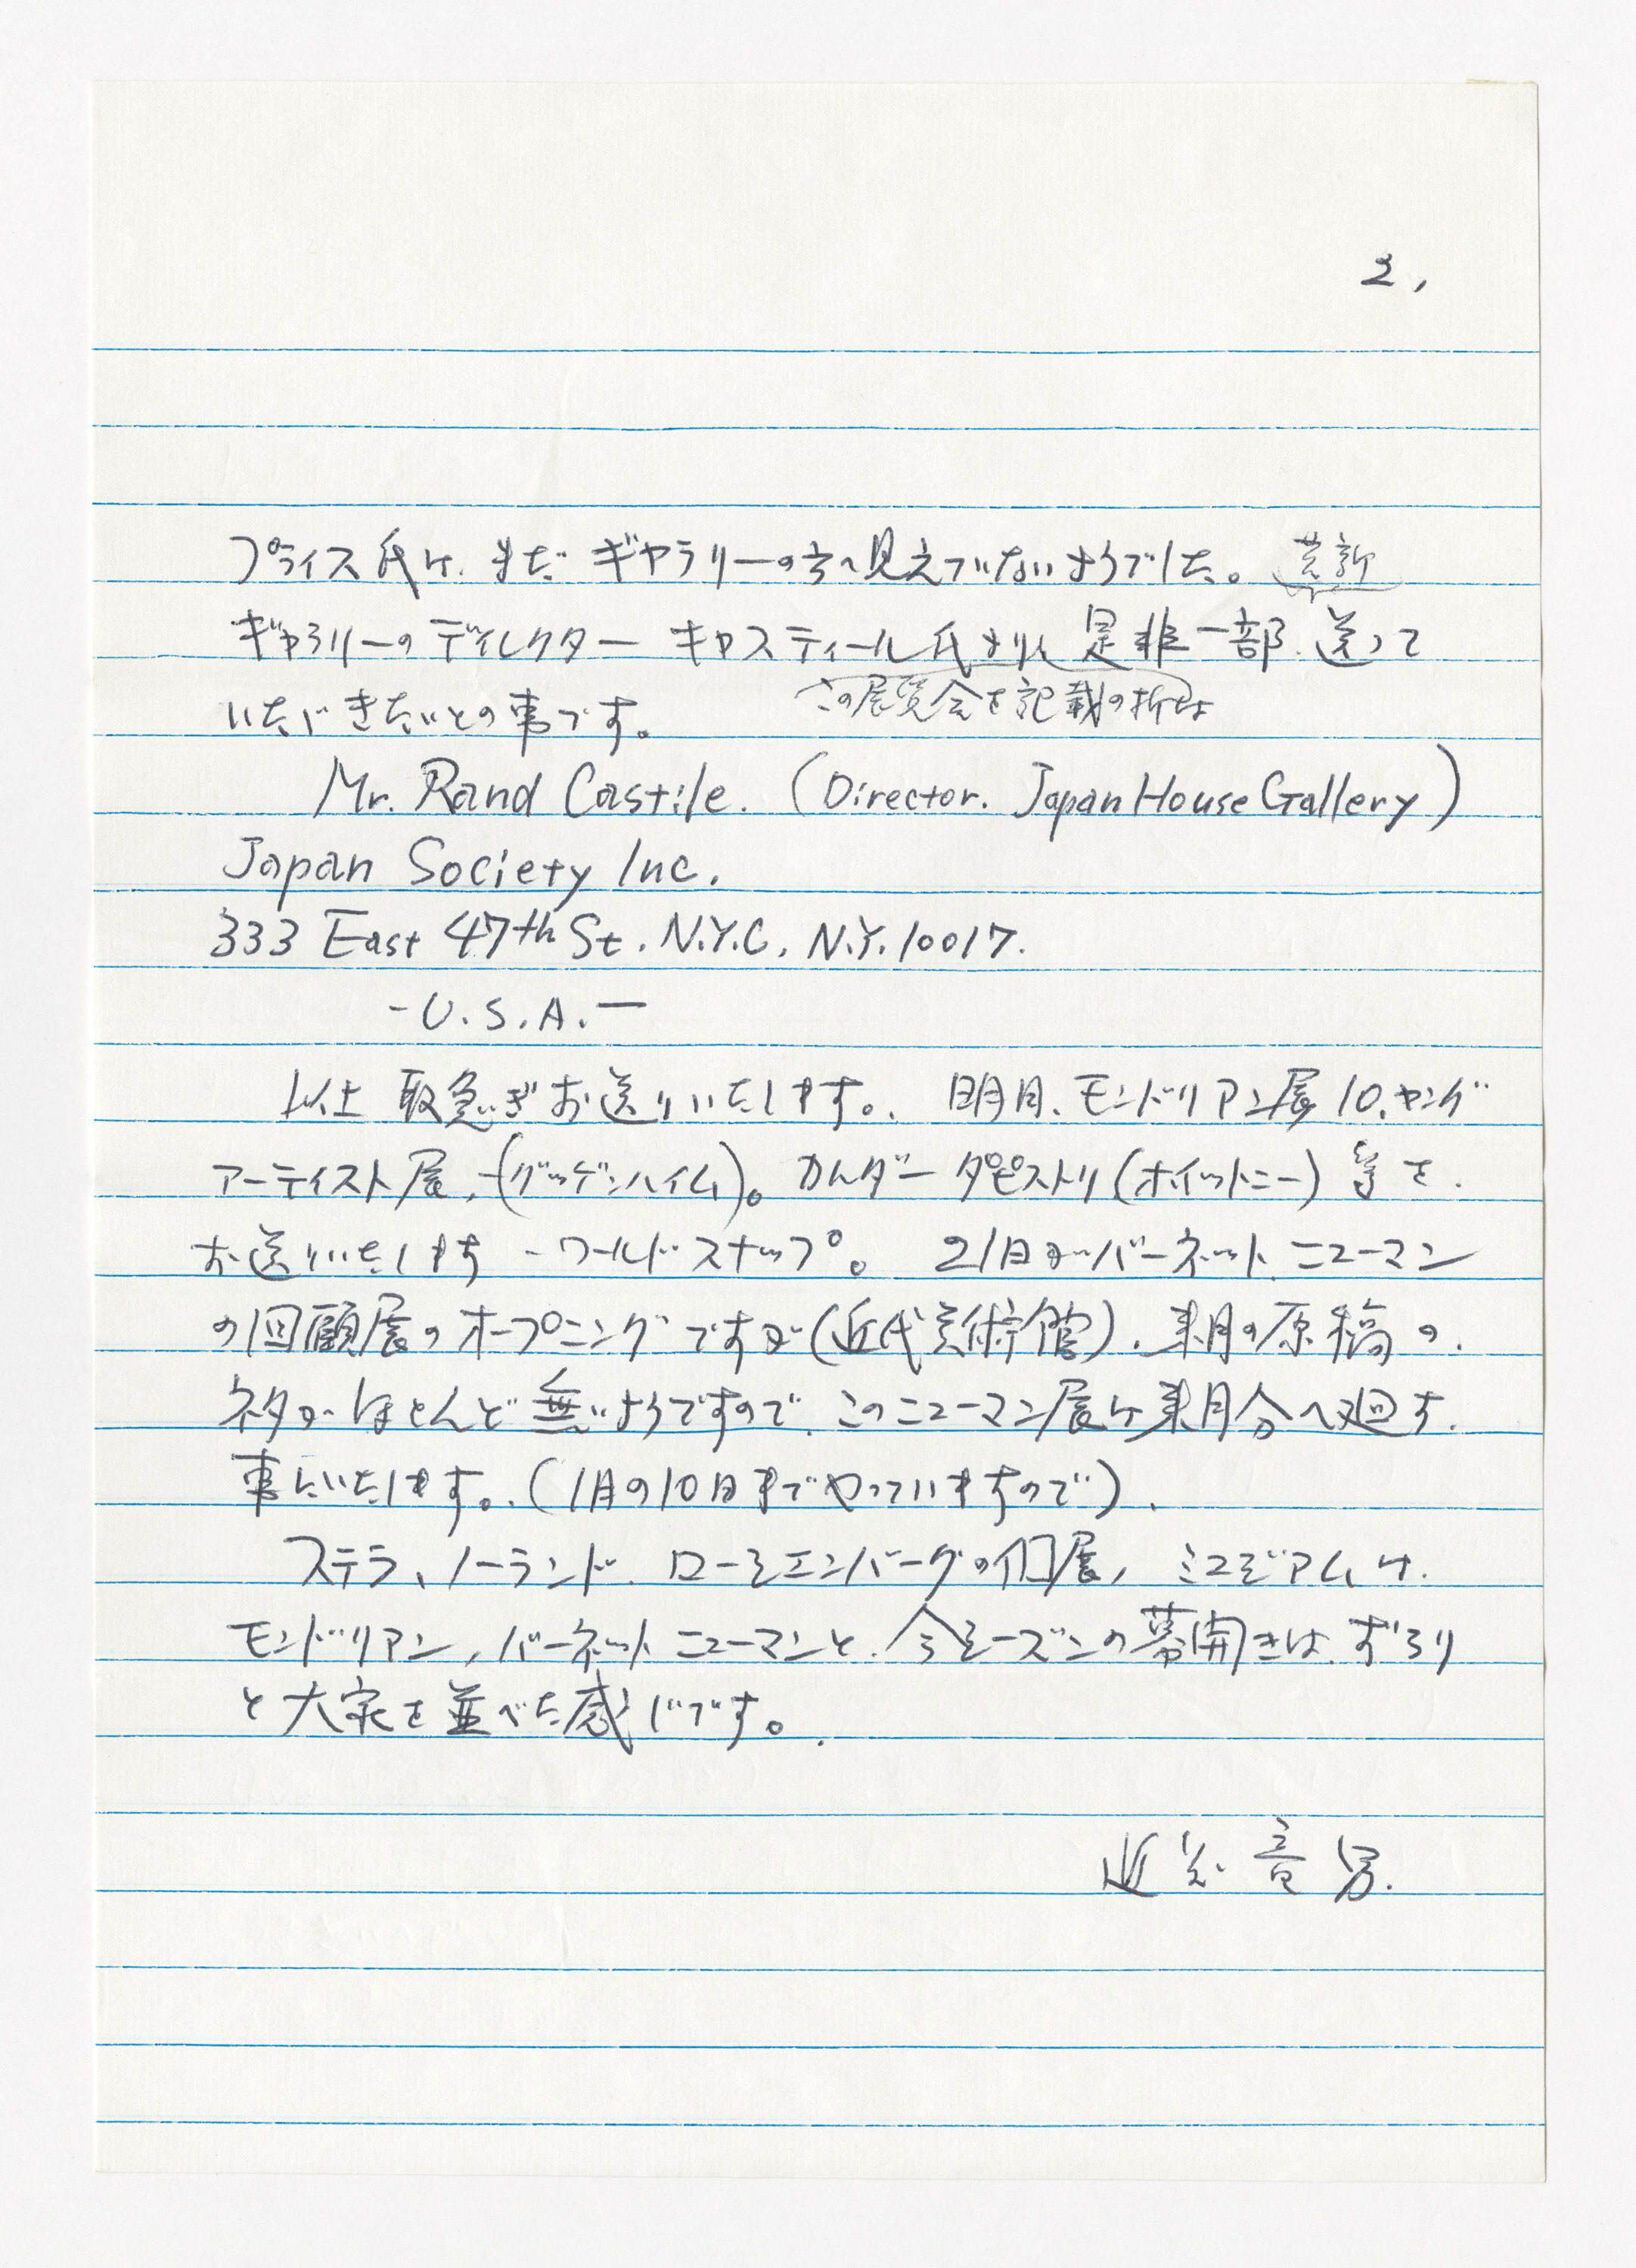 2,
プライス氏は、まだギャラリーの方へ見えていないようでした。芸新
ギャラリーのディレクター キャスティール氏より、是非一部送って
この展覧会を記載の折は
いただきたいとの事です。
Mr. Rand Castile. (Director. Japan House Gallery)
Japan Society Inc.
333 East 47th St. N.Y.C. N.Y. 10017.
-U.S.A.-
以上取急ぎお送りいたします。明月、モンドリアン展10.ヤング
アーティスト展,-(グッゲンハイム)。カルダータピストリ(ホイットニー)等を.
お送りいたします-ワールドスナップ。21日がバーネットニューマン
の回顧展のオープニングですが(近代美術館)、来月の原稿の.
ネタがほとんど無いようですので、このニューマン展は来月分へ廻す.
事にいたします。(1月の10日までやっていますので).
ステラ、ノーランド、ローシェンバーグの個展, ミュゼアムは.
モンドリアン,バーネットニューマンと、今シーズンの幕開きは、ずらり
と大家を並べた感じです。
近竜男.